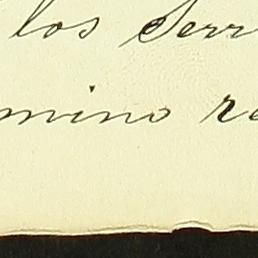 los Serr
mino re